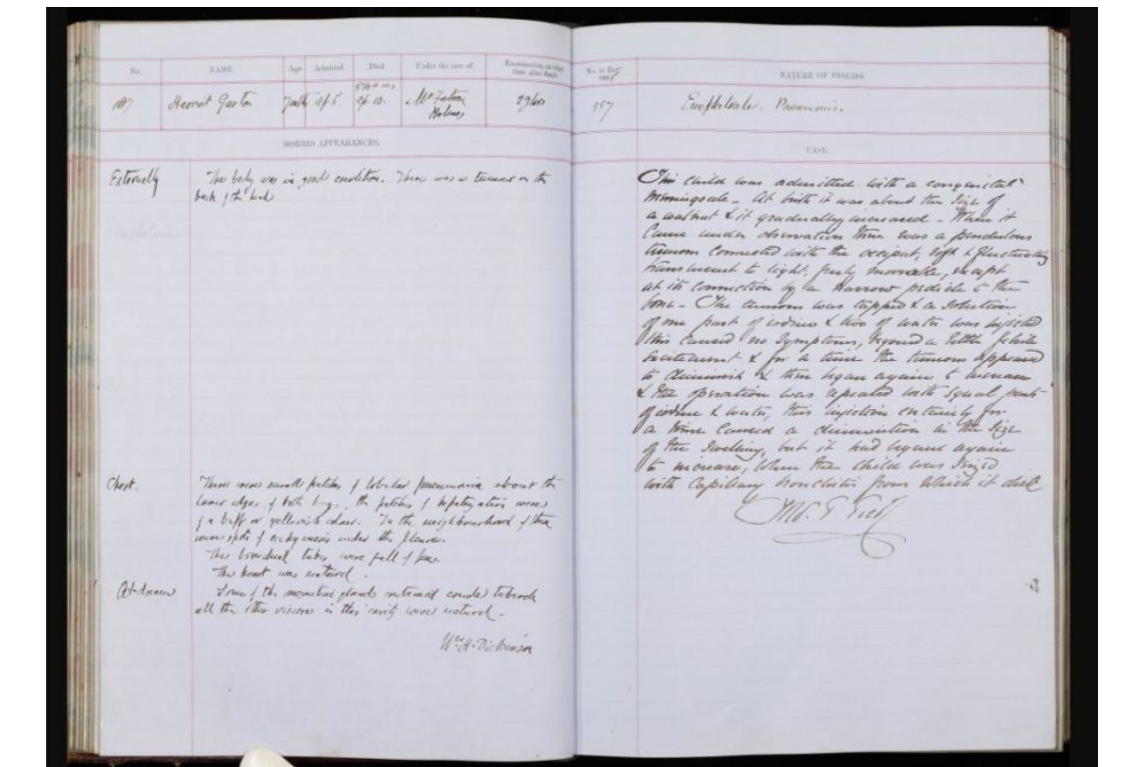 No. NAME Age Admitted Died Under the care of Examination, at what time after death
187 Harriet 7 mth Ap 5 Ap 10. Mr
Holmes 29 hrs
MORBID APPEARANCES.
Externally The body was in good condition. There was a tumour on the
back of the head
Chest. There were small patches of lobular pneumonia about the
lower edges of both lungs, the patches of hepatization were
of a buff or yellowish colour. In the neighbourhood of these
were spots of ecchymosis under the pleura.
The bronchial tubes were full of pus.
The heart was natural.
Abdomen Some of the mesenteric glands contained crude tubercle
all the other viscera in this cavity were natural.
Wm H. Dickinson
No. in Regr NATURE OF DISEASE
357 Encephalocele. Pneumonia.
CASE.
This child was admitted with a congenital
Meningocele - At birth it was about the size of
a walnut & it gradually increased - When it
came under observation there was a pendulous
tumour connected with the occiput, soft & fluctuating
translucent to light, freely moveable, except
at its connection by a narrow pedicle to the
bone - The tumour was tapped & a solution
of one part of iodine & two of water was injected
this caused no symptoms, beyond a little febrile
excitement & for a time the tumour appeared
to diminish & then began again to increase
& the operation was repeated with equal parts
of iodine & water, this injection certainly for
a time caused a diminution in the size
of the swelling, but it had begun again
to increase, when the child was seized
with Capillary bronchitis from which it died